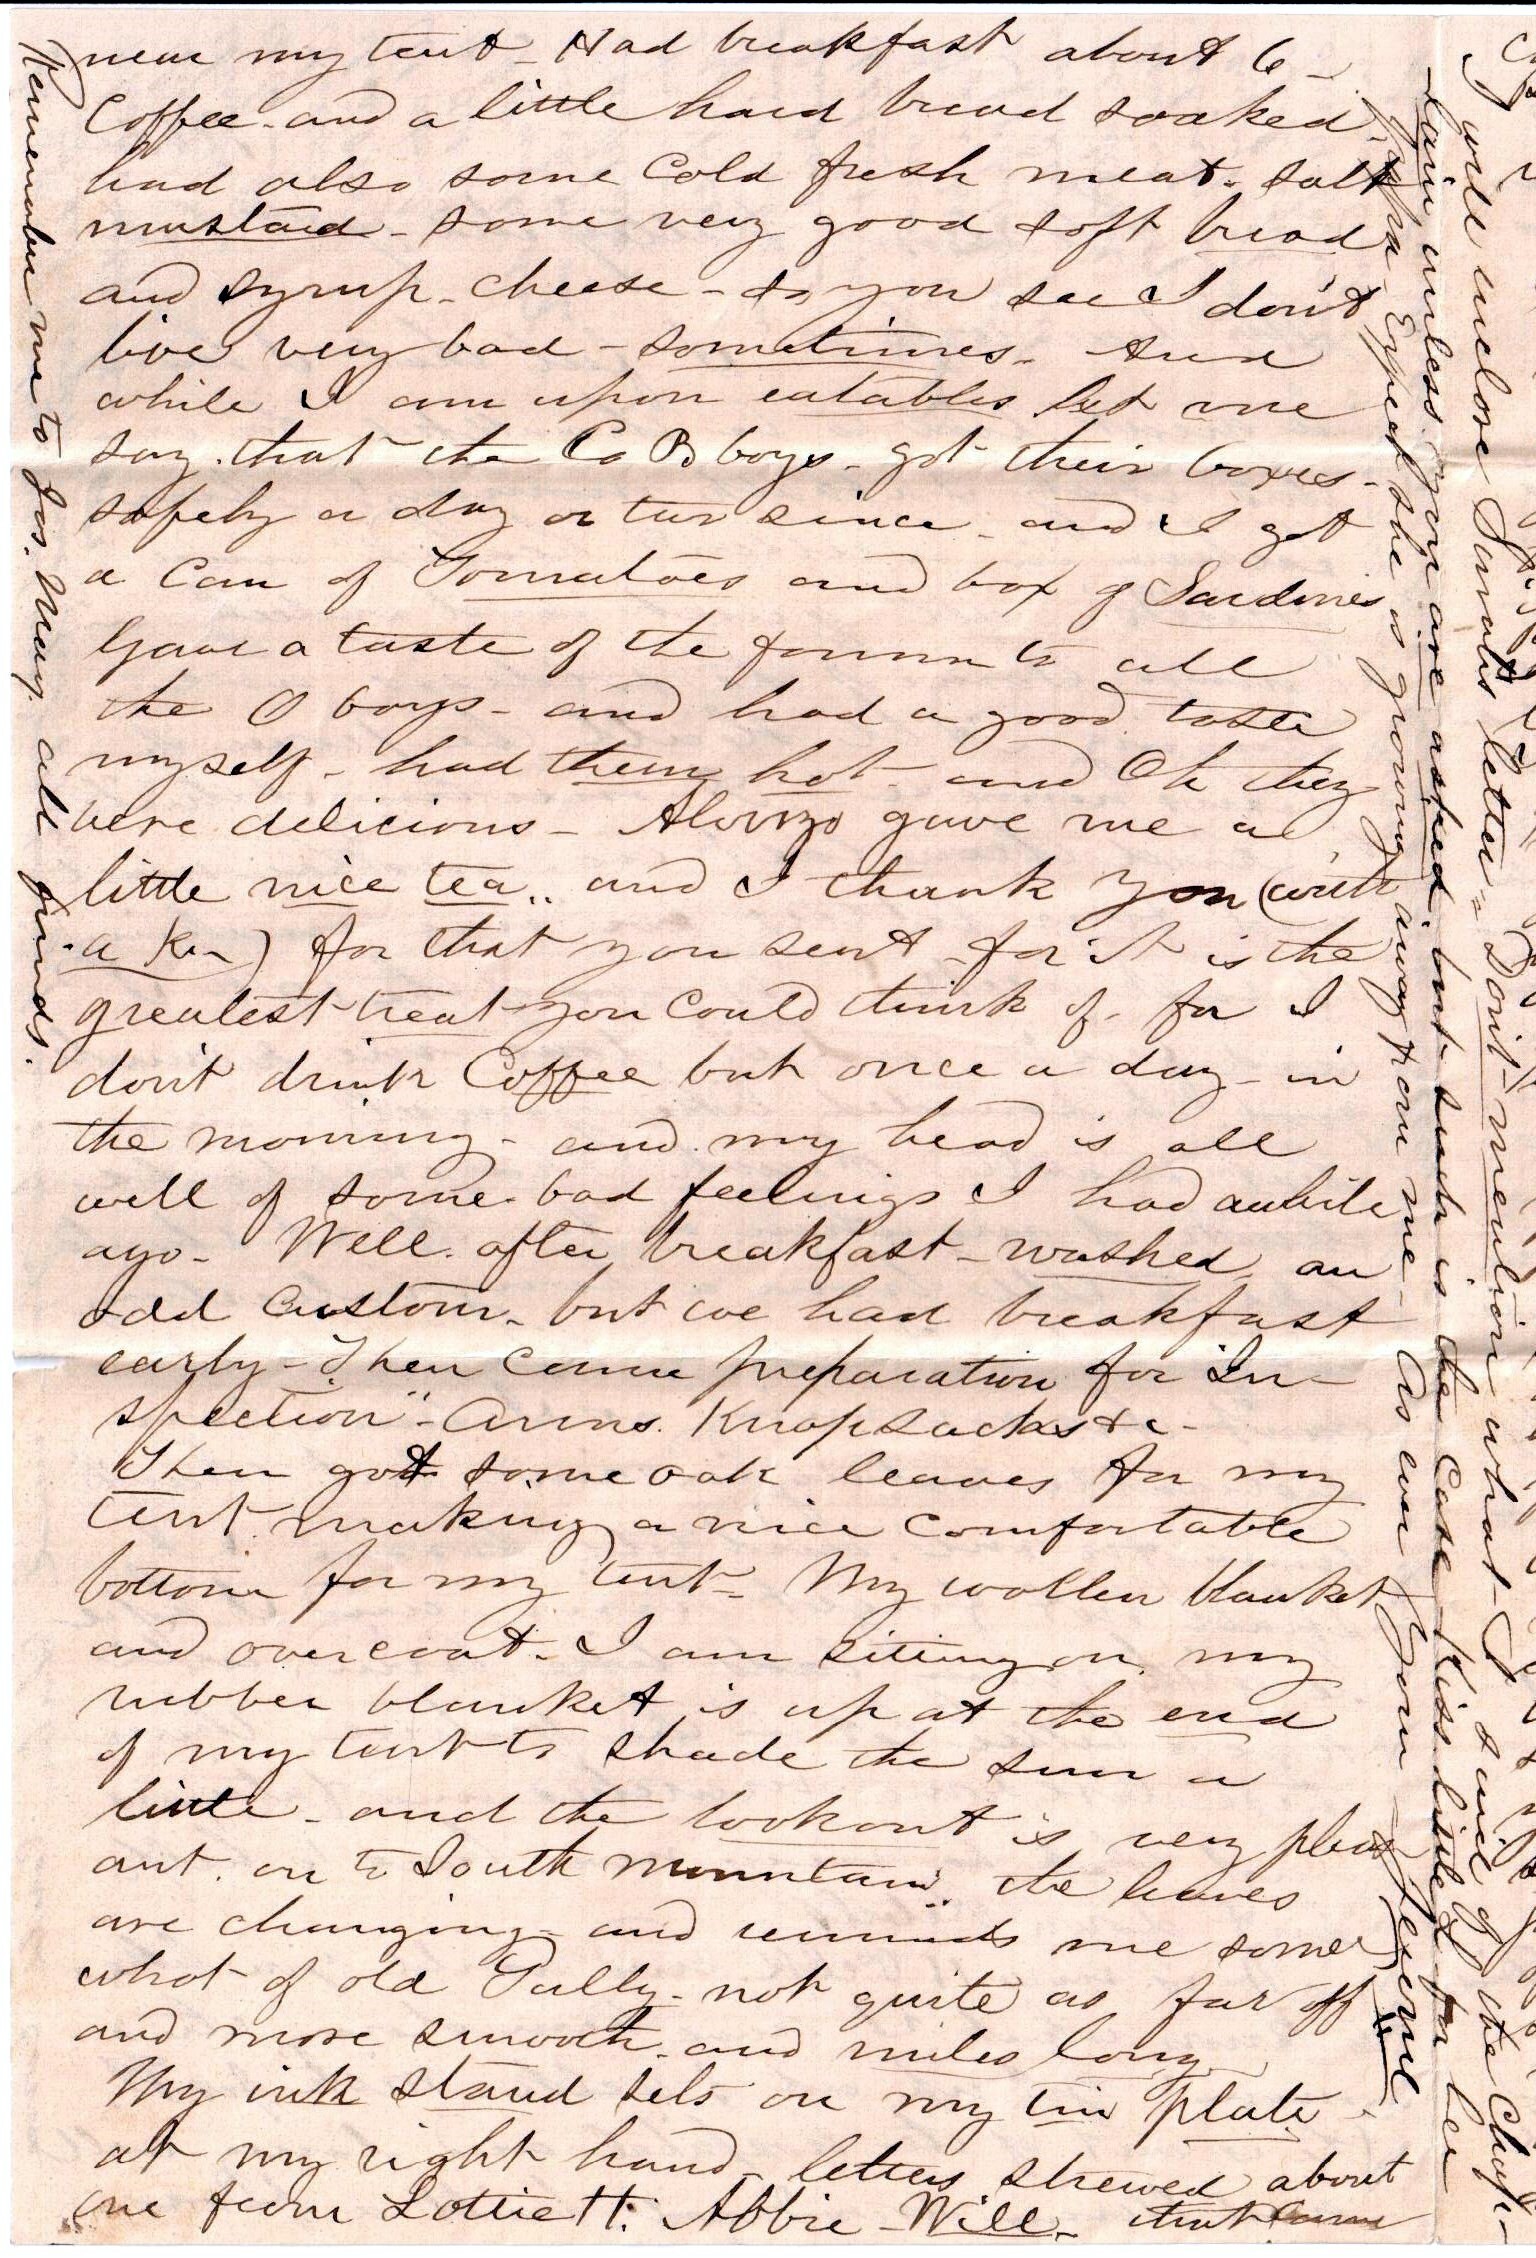 near my tent - Had breakfast about 6 -
Coffee - and a little hard bread soaked -
had also some cold fresh meat - salt
mustard - some very good soft bread
and syrup - cheese - so you see I don't
live very bad - sometimes - And
while I am upon eatables let me
say that the Co B boys - got their boxes -
safely a day or two since - and I got
a can of Tomatoes and box of Sardines
Gave a taste of the former to all
the O boys - and had a good taste
myself - had them hot - and Oh they
were delicious - Alonzo gave me a
little nice tea .. and I thank you (with
a K--) for that you sent - for it is the
greatest treat you could think of - for I
don't drink Coffee but once a day - in
the morning - and my head is all
well of some bad feelings I had awhile
ago - Well after breakfast - washed an
odd custom - but we had breakfast
early - Then came preparation for "In-
spection" - Arms. Knapsacks &c -
Then got some oak leaves for my
tent making a nice comfortable
bottom for my tent - My wollen blanket
and overcoat - I am sitting on my
rubber blanket is up at the end
of my tent to shade the sun a
little - and the lookout is very pleas
ant. on to South mountain .. the leaves
are changing - and reminds me some
what of old Pully - not quite as far off
and more smooth - and miles long -
My ink stand sets on my tin plate -
at my right hand - letters strewed about
one from Lottie H. Abbie - Will - that came
Remember me to Jos. May. all friends.
will enclose letter - Don't mention what I said of the Chap-
lain, unless you are asked but such is the case Kiss little for her
Pa - Expect she is growing away from me - As ever Your Jerome